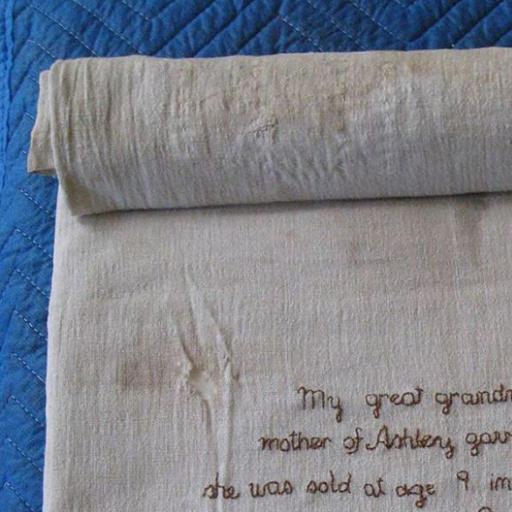 My great grand
mother of Ashley gav
she was sold at age 9 in